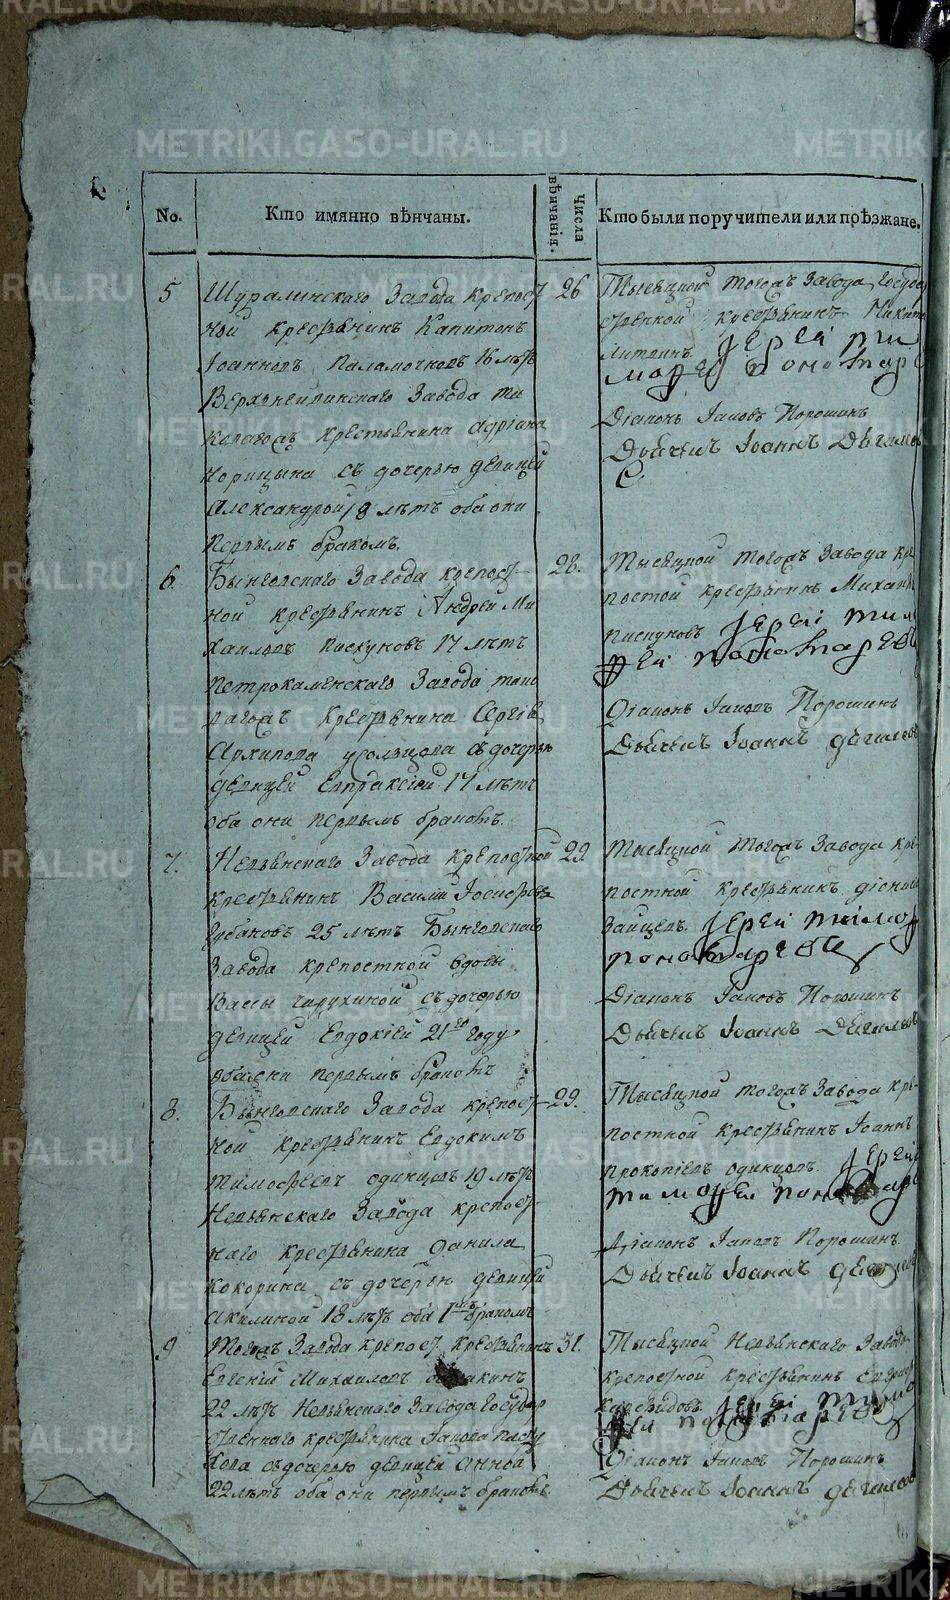 METRIKI.GASO-URAL.RU
No.
Кто имянно вѣнчаны.
Числа вѣнчанія.
Кто были поручители или поѣзжане.
5
Шуралинскаго Завода крепост
ной крестьянинъ Капитонъ
Іоанновъ Паламочновъ 16 лѣтъ
Верхнейвинскаго Завода та
коваго жъ крестьянина Адріана
Корицына съ дочерью девицей
Александрой 18 лѣтъ оба они
первымъ бракомъ.
26
Тысяцкой того жъ Завода Госуда
ственной крестьянинъ Никита
Литвинъ Іерей Тим
офей Пономар
Діаконъ Іаковъ Порошинъ
Дьячекъ Іоаннъ Дягилев
6.
Быньговскаго Завода крепост
ной крестьянинъ Андрей Ми
хаиловъ Пискуновъ 17 лѣтъ
Петрокаменскаго Завода тако
ваго жъ крестьянина Сергія
Архипова Усольцова съ дочерью
девицей Евпраксіей 17 лѣтъ
оба они первымъ бракомъ.
28.
Тысяцкой того жъ Завода кре
постной крестьянинъ Михаилъ
Пискуновъ Іерей Тимо
фей Пономарев
Діаконъ Іаковъ Порошинъ
Дьячекъ Іоаннъ Дягилев
7.
Невьянскаго Завода крепостной
крестьянинъ Василій Іосифовъ
Губановъ 25 лѣтъ Быньговскаго
Завода крепостной вдовы
Вассы Чирухиной съ дочерью
девицей Евдокіей 21го году
оба они первымъ бракомъ
29
Тысяцкой того жъ Завода кре
постной крестьянинъ Діонисій
Зайцевъ. Іерей Тимоф
Пономаревъ
Діаконъ Іаковъ Порошинъ
Дьячекъ Іоаннъ Дягилев
8.
Быньговскаго Завода крепост
ной крестьянинъ Евдокимъ
Тимофеевъ Одинцовъ 19 лѣтъ
Невьянскаго Завода крепост
наго крестьянина Данила
Кокорина съ дочерью девицей
Акилиной 18 лѣтъ оба 1мъ бракомъ
29.
Тысяцкой того жъ Завода кре-
постной крестьянинъ Іоаннъ
Прокопіевъ Одинцовъ. Іерей
Тимофей Пономарев
Діаконъ Іаковъ Порошинъ.
Дьячекъ Іоаннъ Дягилев
9
Того жъ Завода крепост. крестьянинъ
Евгеній Михаиловъ
22 лѣтъ Невьянскаго Завода Государ
ственнаго крестьянина Іакова Пасту
хова съ дочерью девицей Анной
22 лѣтъ оба они первымъ бракомъ.
31.
Тысяцкой Невьянскаго Завода
крепостной крестьянинъ
Іерей Тимо
фей Пономаревъ
Діаконъ Іаковъ Порошинъ
Дьячекъ Іоаннъ Дягилев